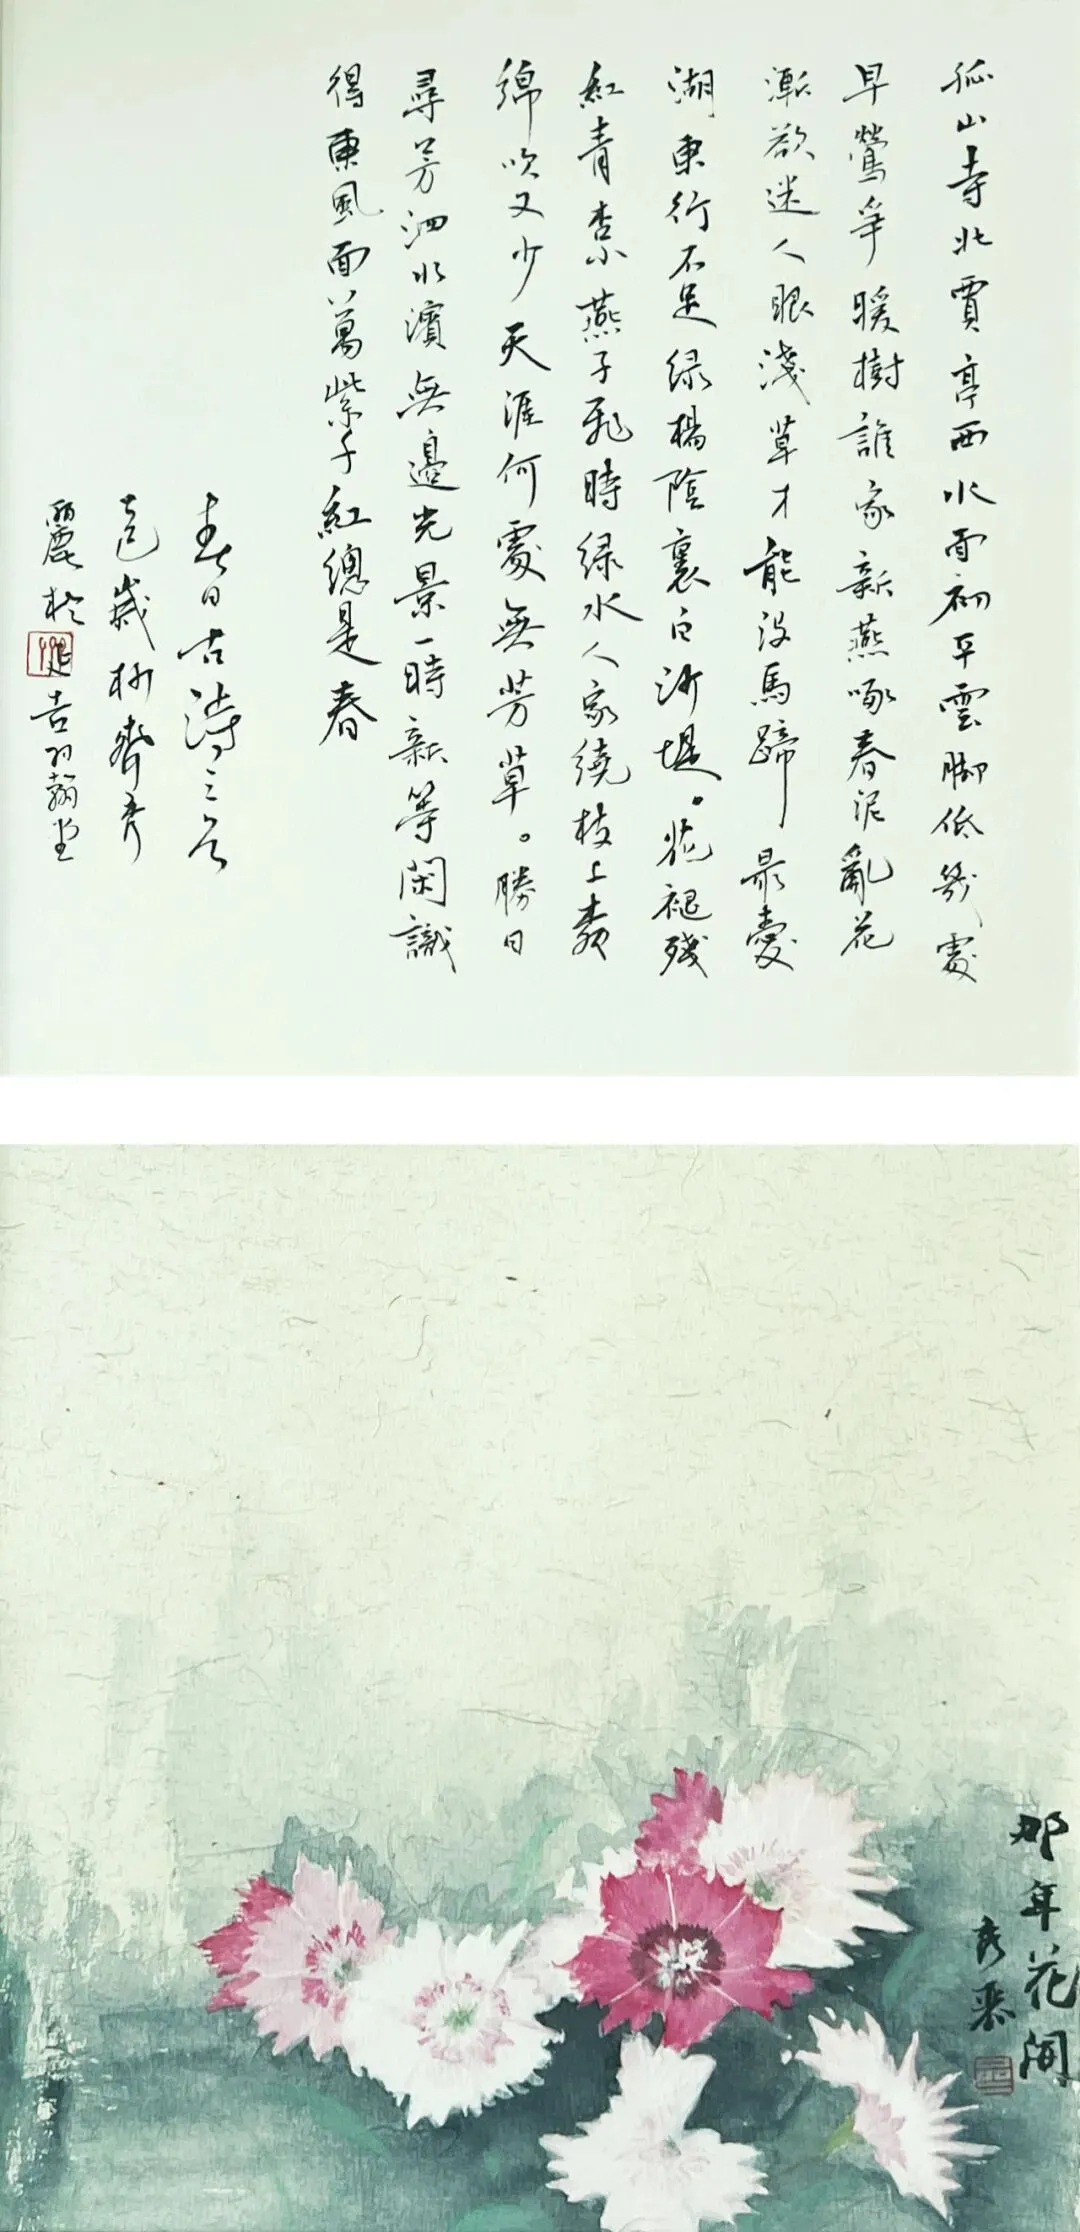 孤山寺北賈亭西水面初平雲脚低幾處
早鶯爭暖樹誰家新燕啄春泥亂花
漸欲迷人眼淺草才能没馬蹄最愛
湖東行不足绿楊陰裏白沙堤。花褪殘
紅青杏小燕子飛時绿水人家繞枝上柳
綿吹又少天涯何處無芳草。勝日
尋芳泗水濱無邊光景一時新等閑識
得東風面萬紫千紅總是春
春日古詩三首
歲杪齊秀
麗於延吉羽翰堂
那年花間